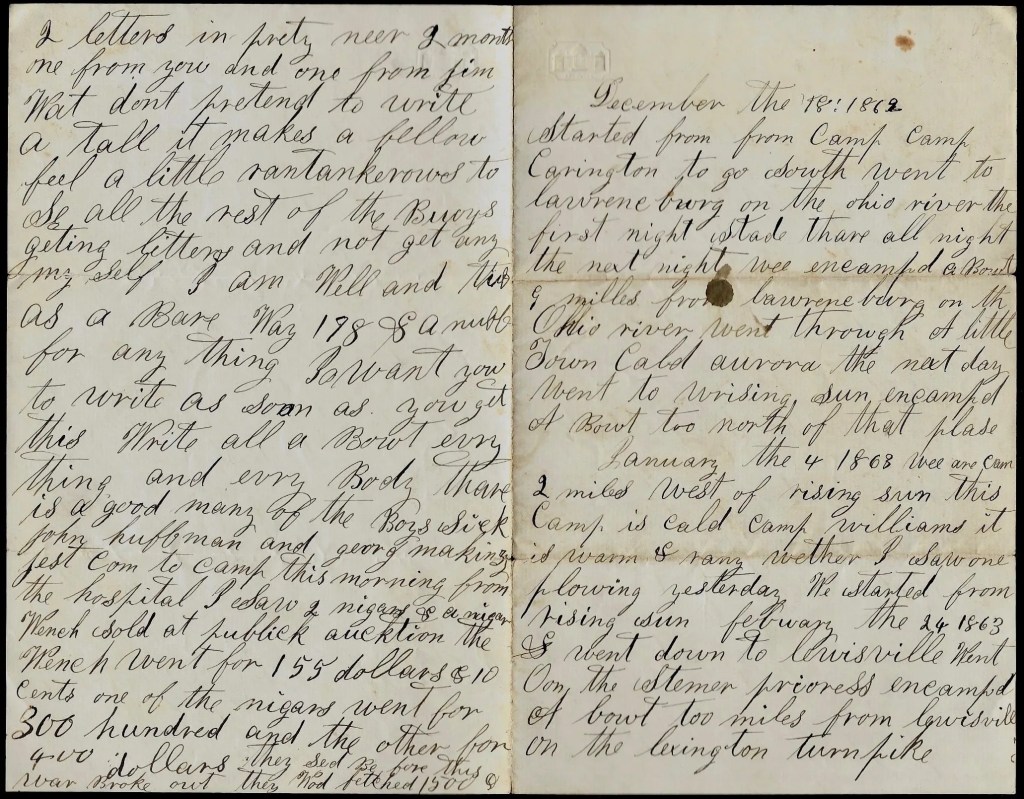 2 letters in prety neer 2 month
one from you and one from jim
Wat dont pretend to write
a tall it makes a fellow
feel a little rantankerows to
Se all the rest of the Buoys
geting letters and not get any
my self I am Well and
as a Bare Way 178 & a nuff
for any thing I want you
to write as soon as you get
this Write all a Bowt evry
thing and evry Body thare
is a good many of the Boys Sick
john huffman and georg making
jest Com to camp this morning from
the hospital I saw 2 nigars & a nigar
Wench sold at publick aucktion the
Wench went for 155 dollars & 10
Cents one of the nigars went for
300 hundred and the other for
400 dollars they sed Be fore this
war Broke out they Wod fetched 1500 &
December the 18: 1862
Started from from Camp Camp
Carington to go South went to
lawreneburg on the ohio river the
first night Stade thare all night
the next night wee encampd a Bowt
9 milles from lawreneburg on th
Ohio river went through A little
Town Cald aurora the next day
went to wrising sun encampd
A Bowt too north of that plase
January the 4 1863 wee are Cam
2 miles west of rising sun this
Camp is cald camp williams it
is warm & rany wether I Saw one
plowing yesterday We started from
rising sun febuary the 24 1863
& went down to lewisville Went
Oon the Stemer prioress encampd
A bowt too miles from lewisville
on the lexington turnpike